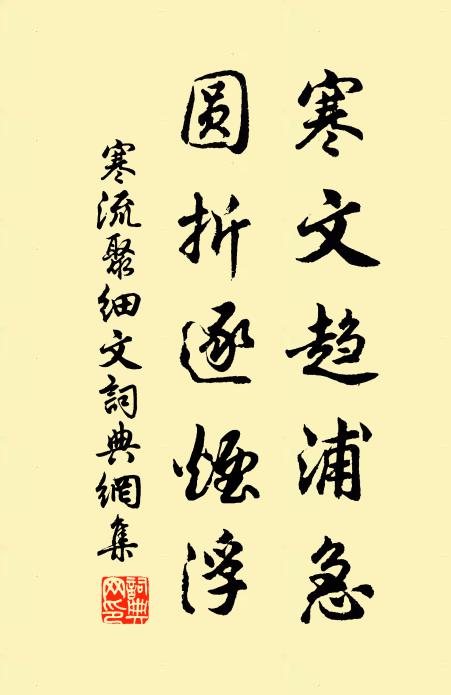 寒文趋浦急
圆折逐烟浮
寒流聚细文詞典網集
詞典网印